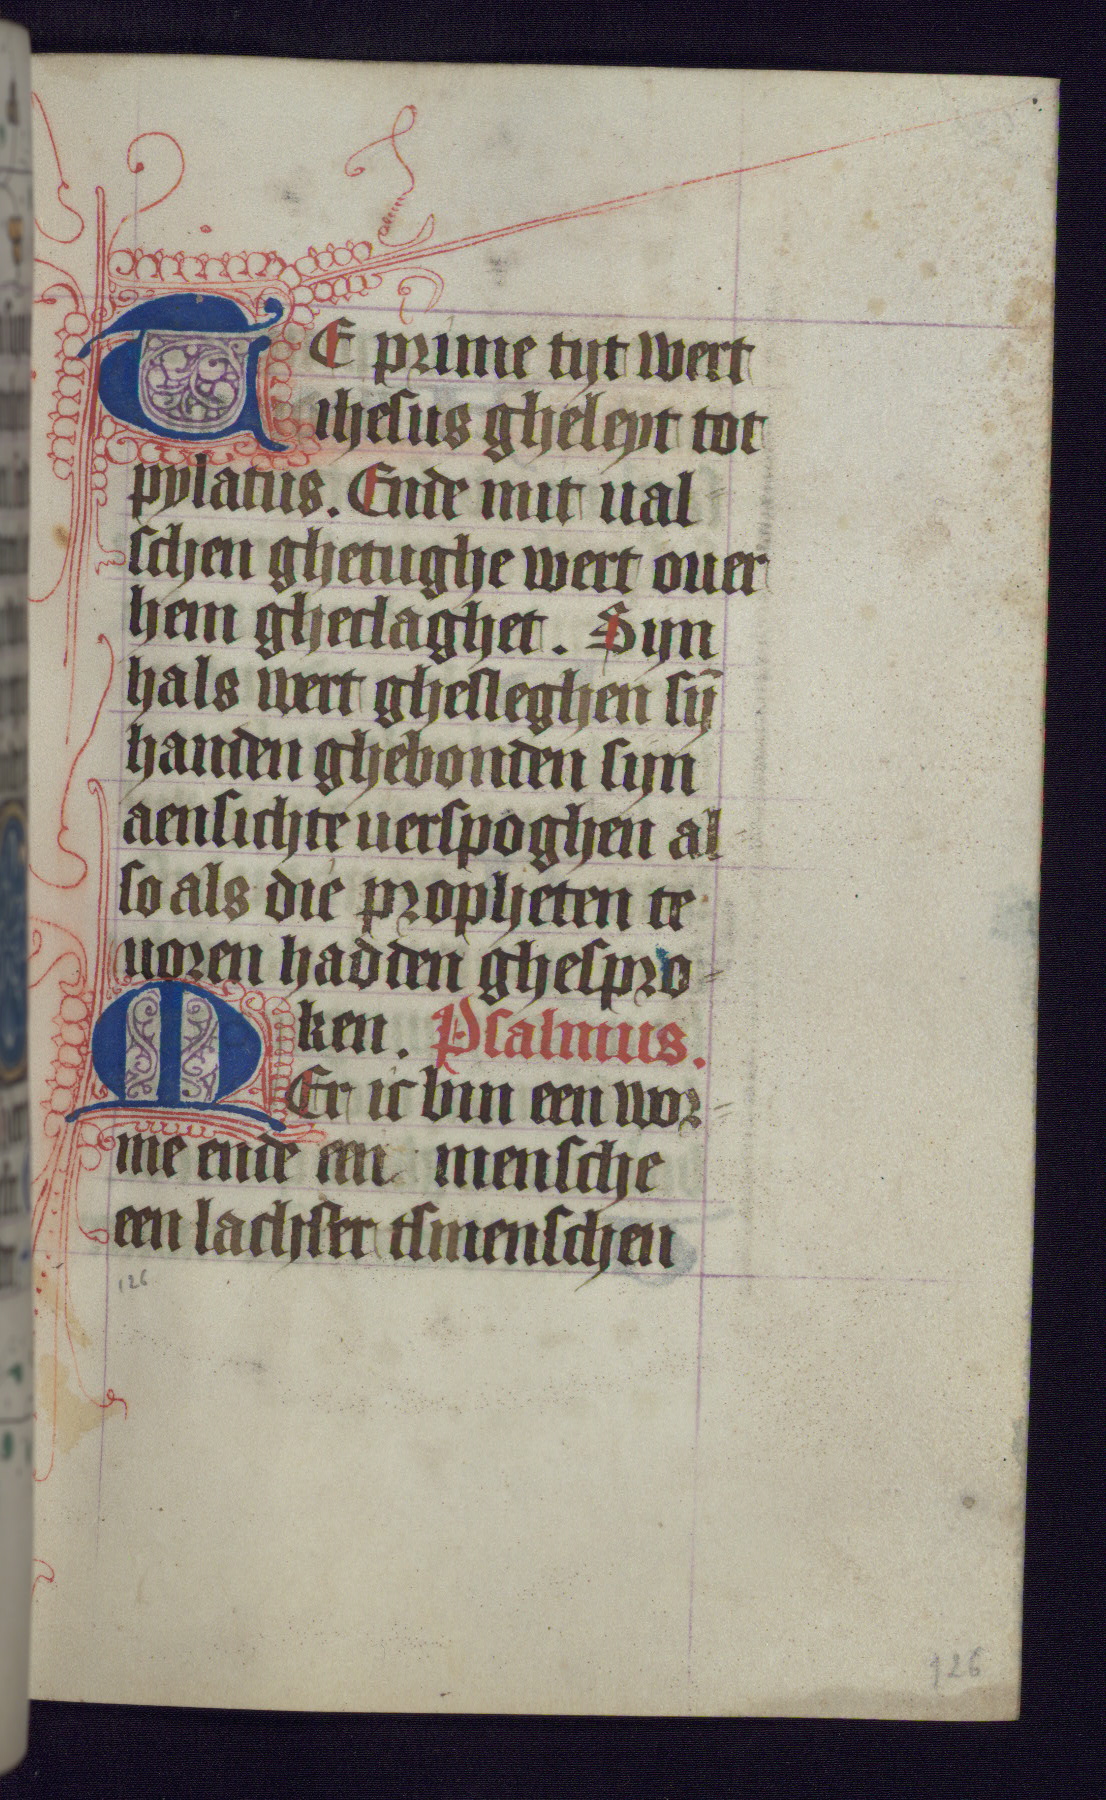 TE prime tijt wert
ihesus gheleyt tot
pylatus. Ende mit ual
schen ghetughe wert ouer
hem gheclaghet. Sijn
hals wert ghesleghen sij̄
handen ghebonden sijn
aensichte uerspoghen al
so als die propheten te
uoren hadden ghespro=
ken. Psalmus.
MEr ic bin een wor=
me ende een mensche
een lachster tsmenschen
126
126